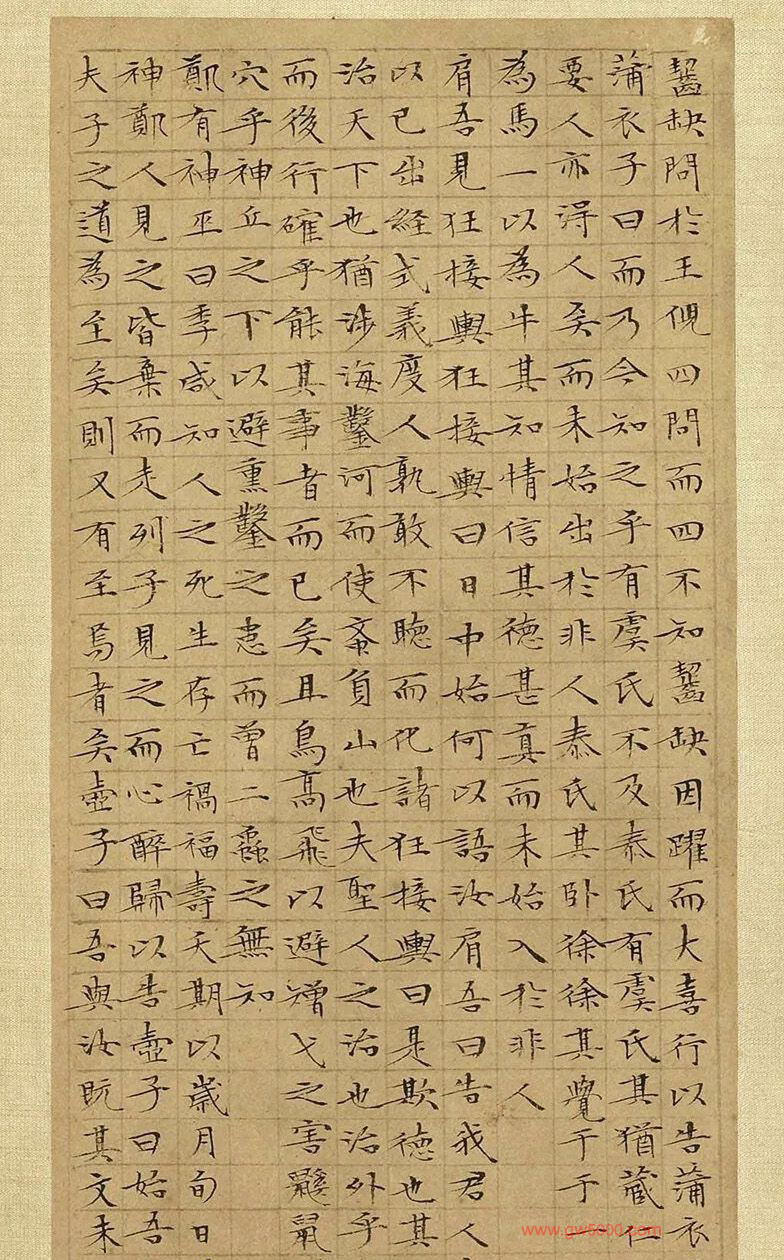 齧缺問於王倪四問而四不知齧缺因躍而大喜行以告蒲衣
蒲衣子曰而乃今知之乎有虞氏不及泰氏有虞氏其猶藏仁
要人亦得人矣而未始出於非人泰氏其卧徐徐其覺于于
為馬一以為牛其知情信其德甚真而未始入於非人
肩吾見狂接輿狂接輿曰日中始何以語汝肩吾曰告我君人
以已出經式義度人孰敢不聽而化諸狂接輿曰是欺德也其
治天下也猶涉海鑿河而使蚉負山也夫聖人之治也治外乎
而後行確乎能其事者而已矣且鳥高飛以避矰弋之害鼷鼠
穴乎神丘之下以避熏鑿之患而曾二蟲之無知
鄭有神巫曰季咸知人之死生存亡禍福壽夭期以歲月旬日
神鄭人見之皆棄而走列子見之而心醉歸以告壺子曰始吾
夫子之道為至矣則又有至焉者矣壺子曰吾與汝既其文未
www.gw5000.com